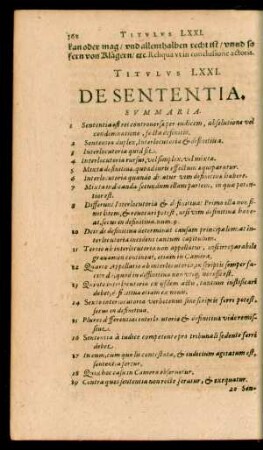 362 TITVLVS LXXI.
kan oder mag / vnd allenthalben recht ist / vnnd so
fern von Klägern / etc. Reliqua vt in conclusione actoris.
TITVLVS LXXI.
DE SENTENTIA.
SVMMARIA.
1 Sententia est rei controuersæ per iudicem, absolutione vel
condemnatione, facta definitio.
2 Sententia duplex, Interlocutoria & definitiua.
3 Interlocutoria quid sit.
4 Interlocutoria rursus, vel simplex vel mixta.
5 Mixta definitiua, quo ad certos effectus æquiparatur.
6 Interlocutoria quando dicatur vim definitiuæ habere.
7 Mixta red secundum partem, in qua poten-
tior est.
8 Differunt Interlocutoria & definitiua: Primo illa non fi-
nit litem, & reuocari potest, vim definitiua
secus in definitiua. num. 9.
10 Deinde definitiua determinat causam principalem, at in-
terlocutoria interdum tantum capitulum.
11 Tertio ab interlocutoria non appellatur, nisi irreparabile
grauamen contineat, etiam in Camera.
12 Quarto Appellatio ab interlocutoria, in scriptis semper fa-
cienda: quod in definitiua non necesse est.
13 Quinto interlocutoria ex actu, tantum iustificari
debet, definitiua etiam ex nouis.
14 Sexto interlocutoria verbotenus sine scriptis ferri potest,
secus in definitiua.
15 Plures differentias interlocutoriæ & definitiuæ videre
16 Sententia à iudice competente pro tribunali sedente ferri
debet.
17 In eum, cum quo lis contestata, & iudicium agitatum est,
sententia fertur.
18 Quid hoc casu in Camera obseruetur.
19 Contra quos sententia non recte feratur, & exequatur.
20 Sen-